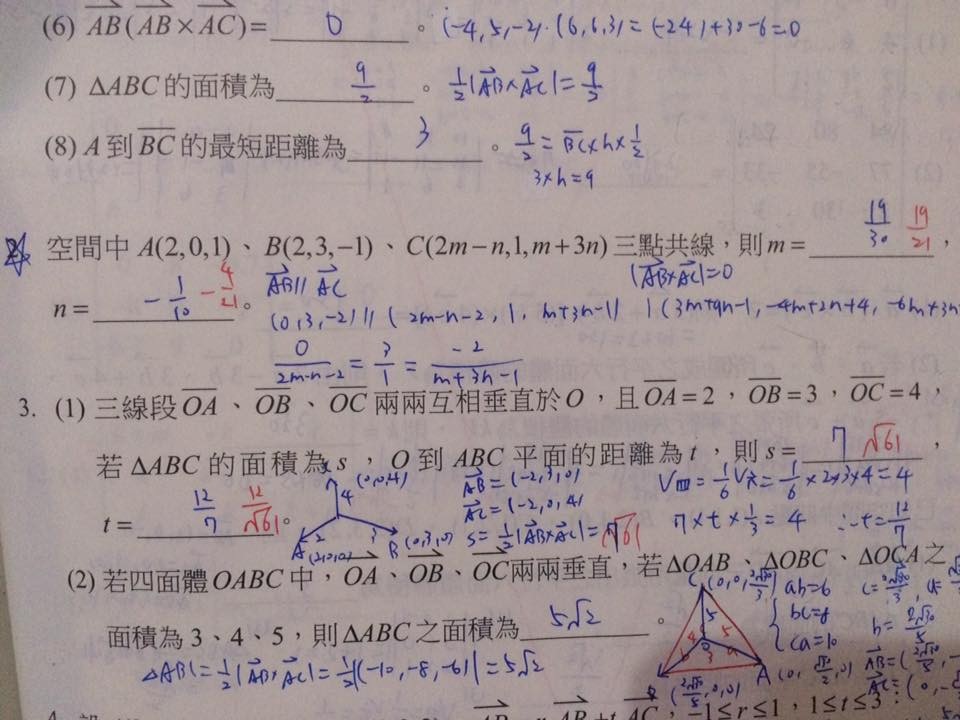 (6) AB(AB×AC)= 0 。 (-4,5,-2)·(6,6,3)=(-24)+30-6=0
(7) ΔABC的面積為 9/2 。 1/2|AB×AC|=9/2
(8) A到BC的最短距離為 3 。 9/2=BC×h×1/2
3×h=9
2. 空間中A(2,0,1)、B(2,3,-1)、C(2m-n,1,m+3n)三點共線,則m= 19/30 19/21 ,
n= -1/10 -4/21 。 AB//AC |AB×AC|=0
(0,3,-2)//(2m-n-2,1,m+3n-1)
0/(2m-n-2)=3/1=-2/(m+3n-1)
3. (1) 三線段OA、OB、OC兩兩互相垂直於O,且OA=2,OB=3,OC=4,
若ΔABC的面積為s,O到ABC平面的距離為t,則s= 7 √61 ,
t= 12/7 12/√61 。
C (0,0,4) 4
A (2,0,0) 2 3 B (0,3,0)
AB=(-2,3,0)
AC=(-2,0,4)
s=1/2|AB×AC|=√61
V四=1/6V六=1/6×2×3×4=4
7×t×1/3=4 ∴t=12/7
(2) 若四面體OABC中,OA、OB、OC兩兩垂直,若ΔOAB、ΔOBC、ΔOCA之
面積為3、4、5,則ΔABC之面積為 5√2 。
ΔABC=1/2|AB×AC|=1/2|(-10,-8,-6)|=5√2
ab=6
bc=8
ca=10
-1≤r≤1,1≤t≤3